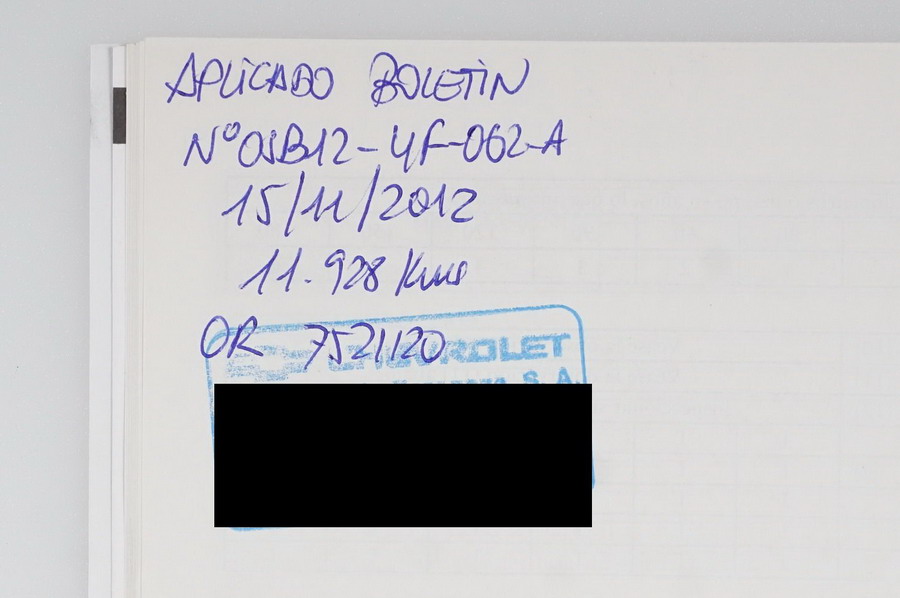 APLICADO BOLETIN
Nº OSB12-4F-062-A
15/11/2012
11.928 Kms
OR 7521120
CHEVROLET
S. A.